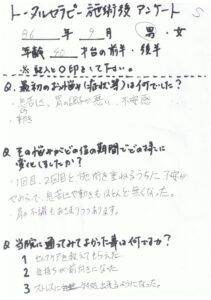 トータルセラピー施術後アンケート S
86年 9月 男・女
年齢 40 才台の前半・後半
※記入と○印をして下さい。
Q.最初のお悩み(症状等)は何でしたか?
・息苦しさ、胃の調子が悪い、不安感
・動き
Q.その悩みがどの位の期間でどの様に
変化しましたか?
1回目、2回目と施術を重ねるうちに不安が
やわらいで、息苦しさや動きもほとんど無くなった。
胃の不調もおさまりつつあります。
Q.当院に通ってみてよかった事は何ですか?
1 セルフケアを教えてもらえた
2 気持ちが前向きになった
3 ストレスに対処出来るようになった。